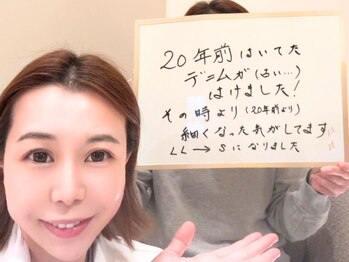 20年前はいてた
デニムが(古い…)
はけました!
その時より(20年前より)
細くなった気がしてます
LL→Sになりました